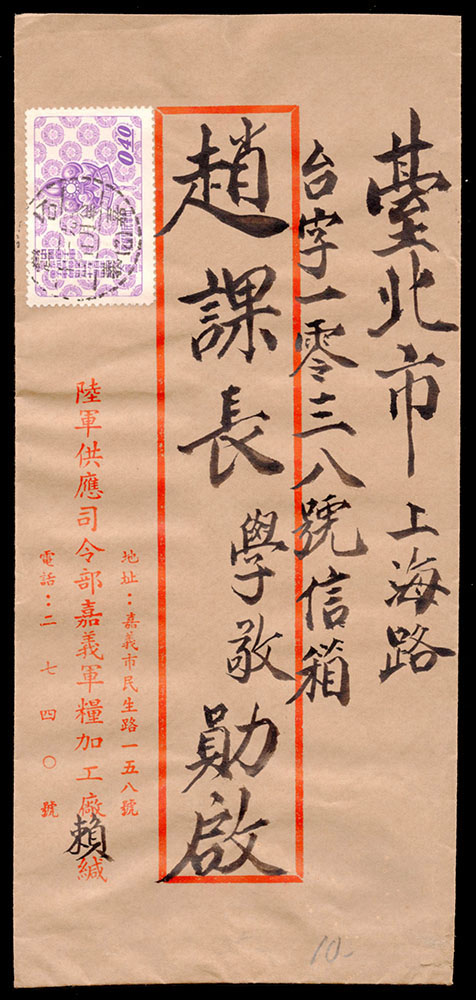 臺北市上海路
台字一零三八號信箱
趙課長學敬勛啟
0.40
地址：嘉義市民生路一五八號
陸軍供應司令部嘉義軍糧加工廠賴緘
電話：二七四〇號
10